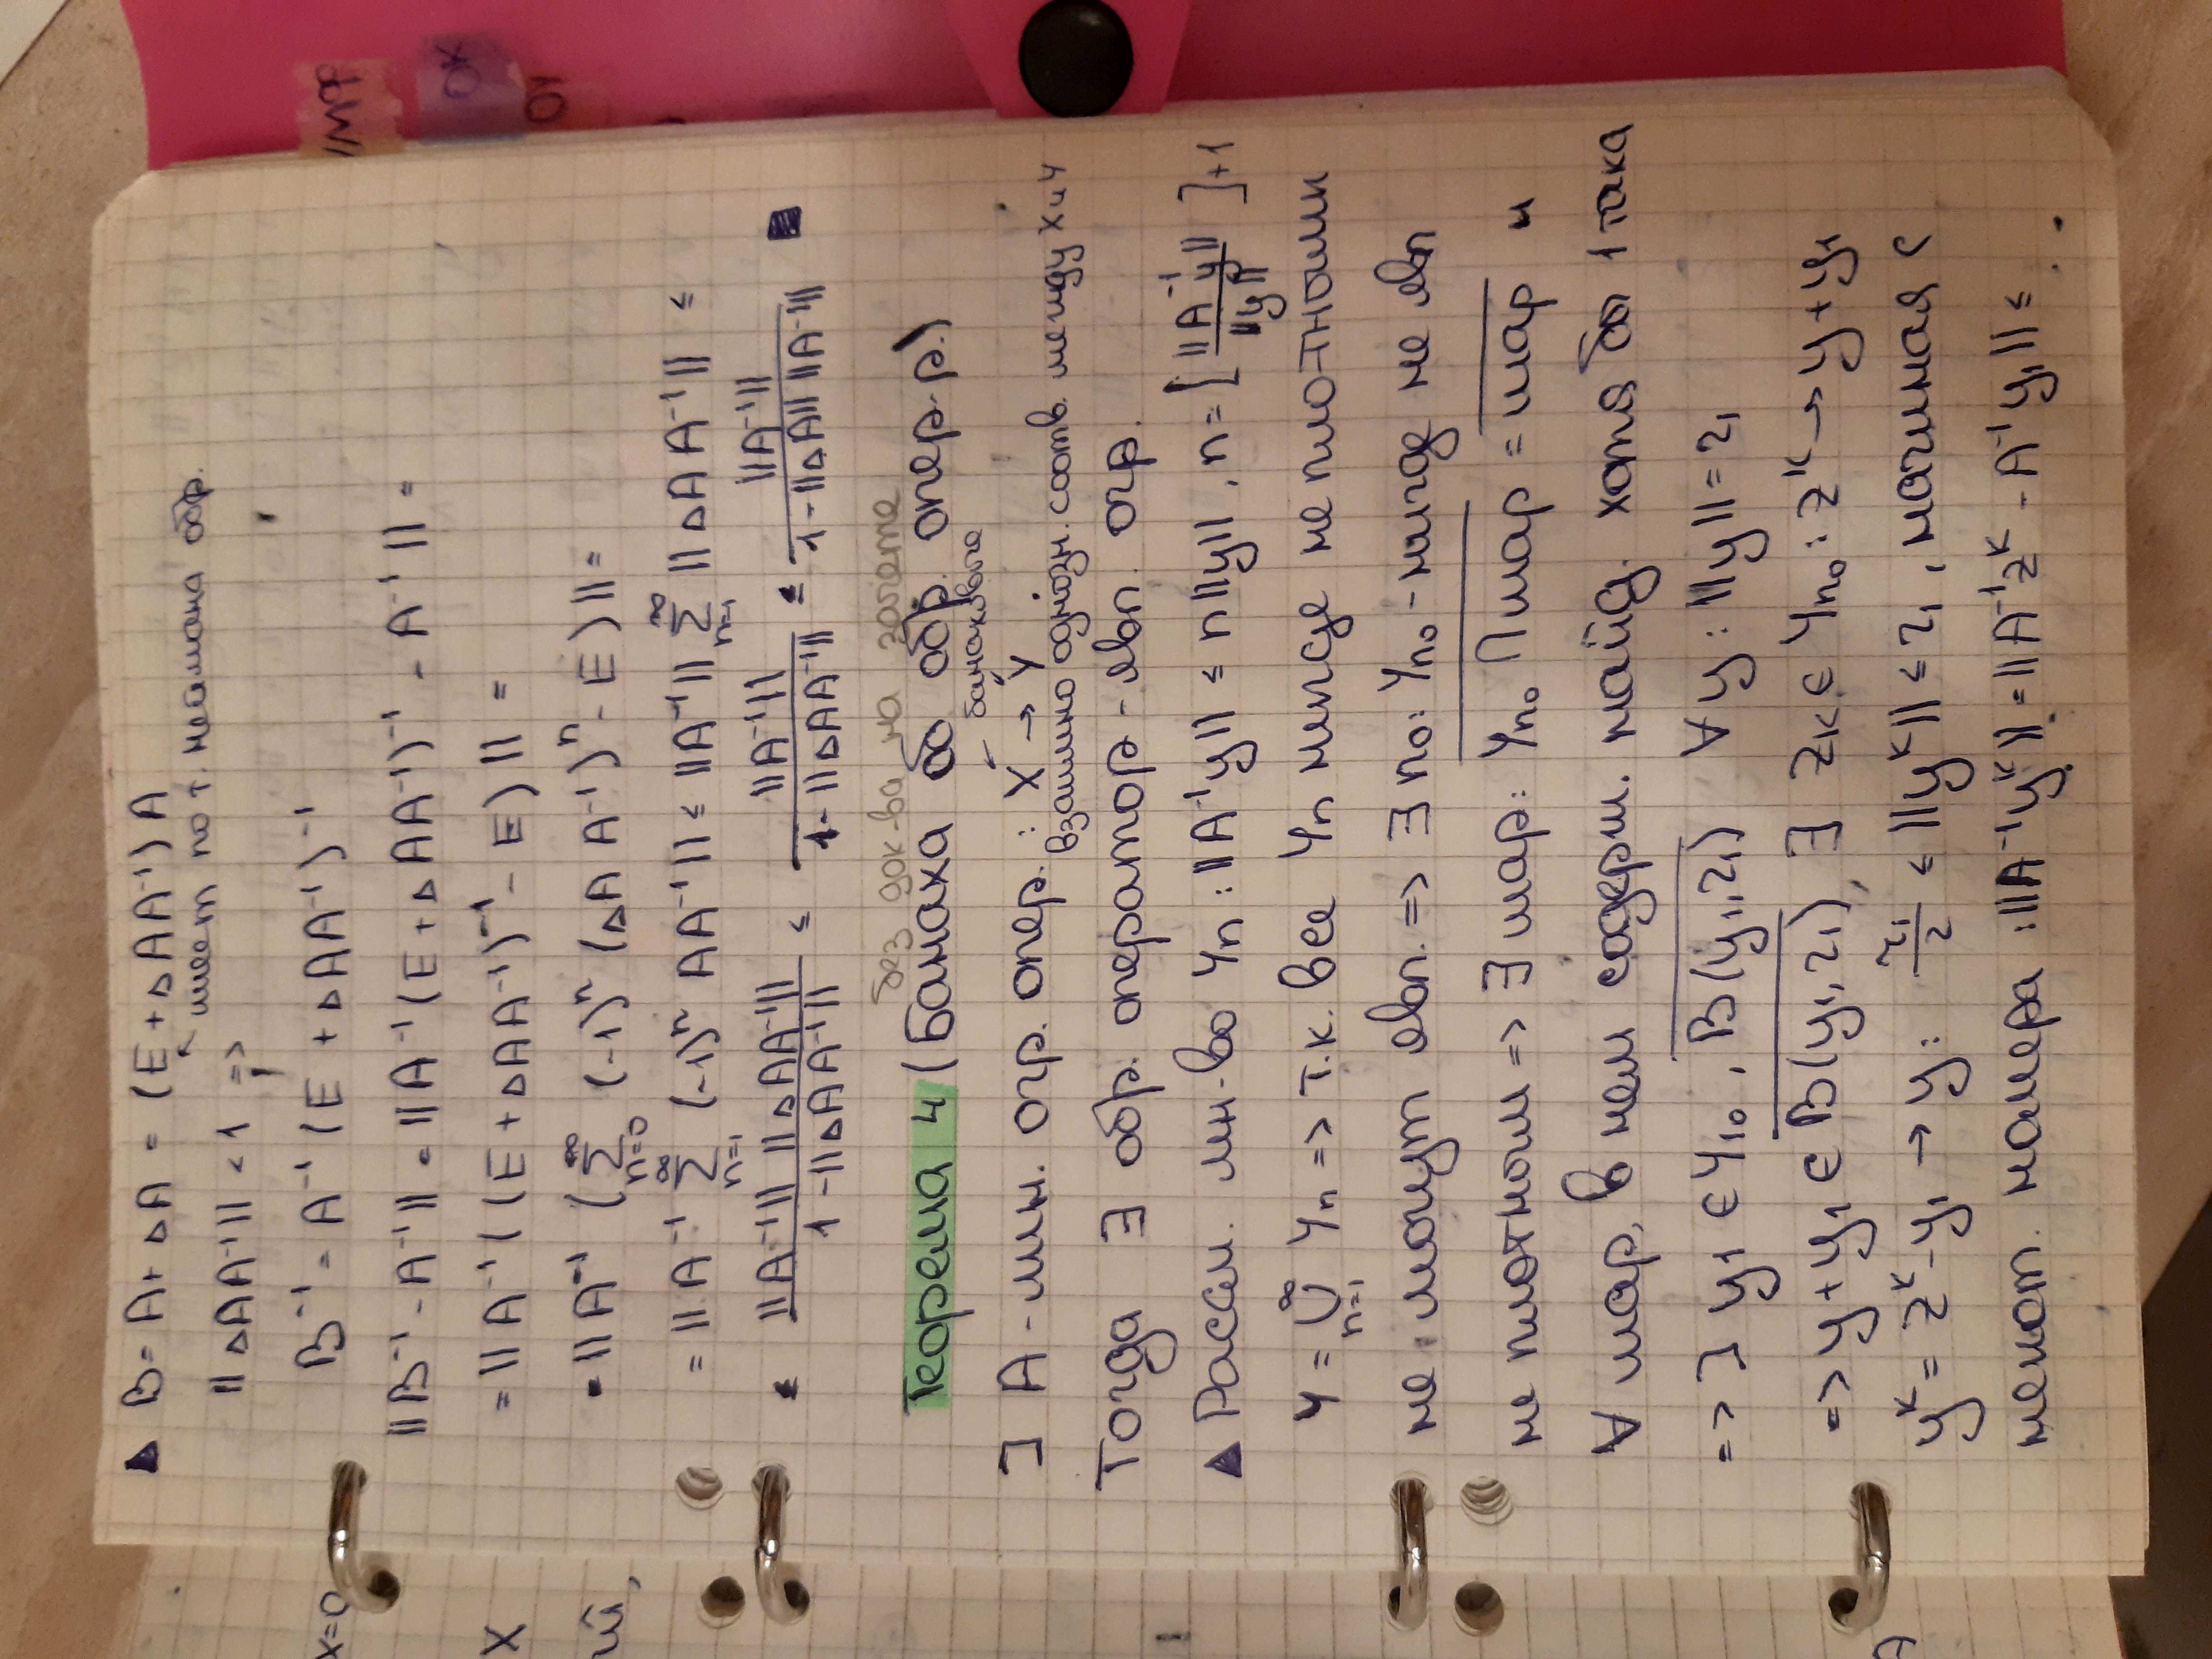 ▲ B = A + ΔA = (E + ΔAA⁻¹) A
имеет по т. Неймана обр.
||ΔAA⁻¹|| < 1 =>
B⁻¹ = A⁻¹ (E + ΔAA⁻¹)⁻¹
||B⁻¹ - A⁻¹|| = ||A⁻¹ (E + ΔAA⁻¹)⁻¹ - A⁻¹|| =
= ||A⁻¹ ((E + ΔAA⁻¹)⁻¹ - E)|| =
= ||A⁻¹ (∑_{n=0}^{∞} (-1)ⁿ (ΔA A⁻¹)ⁿ - E)|| =
= ||A⁻¹ ∑_{n=1}^{∞} (-1)ⁿ AA⁻¹|| ≤ ||A⁻¹|| ∑_{n=1}^{∞} ||ΔAA⁻¹|| ≤
= ||A⁻¹|| ||ΔAA⁻¹|| / 1 - ||ΔAA⁻¹|| ≤ ||A⁻¹|| / 1 - ||ΔAA⁻¹|| ≤ ||A⁻¹|| / 1 - ||ΔA|| ||A⁻¹|| ■
без док-ва на зачете
Теорема 4 (Банаха об обр. опер-р.)
банаховы
∃ A - лин. огр. опер.: X → Y
взаимно однозн. соотв. между X и Y
Тогда ∃ обр. оператор - явл. огр.
▲ Рассм. мн-во Yn : ||A⁻¹y|| ≤ n||y||, n = [ ||A⁻¹y|| / ||y|| ] + 1
Y = ⋃_{n=1}^{∞} Yn => т.к. все Yn нигде не плотными
не могут явл. => ∃ n₀: Yn₀ - нигде не явл
не плотным => ∃ шар: Yn₀ ∩ шар = шар и
∀ шар, в нем содерж. найд. хотя бы 1 тока
=> ∃ y₁ ∈ Y₁₀, B(y₁, r₁) ∀ y : ||y|| = r₁
=> y + y₁ ∈ B(y₁, r₁), ∃ zк ∈ Yn₀ : zᵏ → y + y₁
yᵏ = zᵏ - y₁ → y : r₁/2 ≤ ||yᵏ|| ≤ r₁, начиная с
некот. номера : ||A⁻¹yᵏ|| = ||A⁻¹zᵏ - A⁻¹y₁|| ≤
x=0
X
ий,